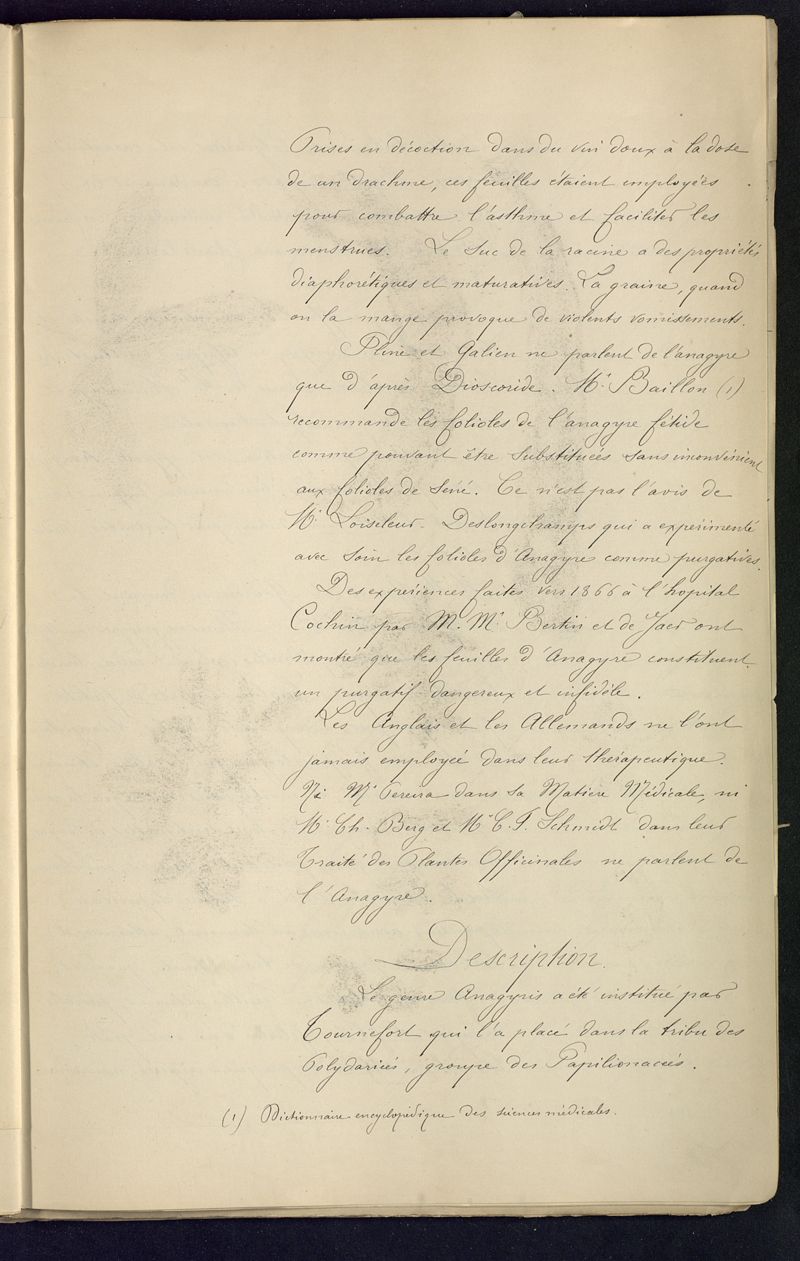 Prises en décoction dans du vin doux à la dose
de un drachme, ces feuilles étaient employées
pour combattre l'asthme et faciliter les
menstrues. Le suc de la racine a des propriétés
diaphorétiques et maturatives. La graine, quand
on la mange provoque de violents vomissements.
Pline et Galien ne parlent de l'anagyre
que d'après Dioscoride. Mr Baillon (1)
recommande les folioles de l'anagyre fétide
comme pouvant être substituées sans inconvénient
aux folioles de Séné. Ce n'est pas l'avis de
Mr Loiseleur-Deslongchamps qui a expérimenté
avec soin les folioles d'Anagyre comme purgatives.
Des expériences faites vers 1866 à l'hôpital
Cochin par M.Mr Bertin et de Jaer ont
montré que les feuilles d'Anagyre constituent
un purgatif dangereux et infidèle.
Les Anglais et les Allemands ne l'ont
jamais employée dans leur thérapeutique.
Ni Mr Pereira dans sa Matière Médicale, ni
Mr Th. Berg et Mr C. F. Schmidt dans leur
Traité des Plantes Officinales ne parlent de
l'Anagyre.
Description.
Le genre Anagyris a été institué par
Tournefort qui l'a placé dans la tribu des
Polydariées, groupe des Papilionacées.
(1) Dictionnaire encyclopédique des sciences médicales.